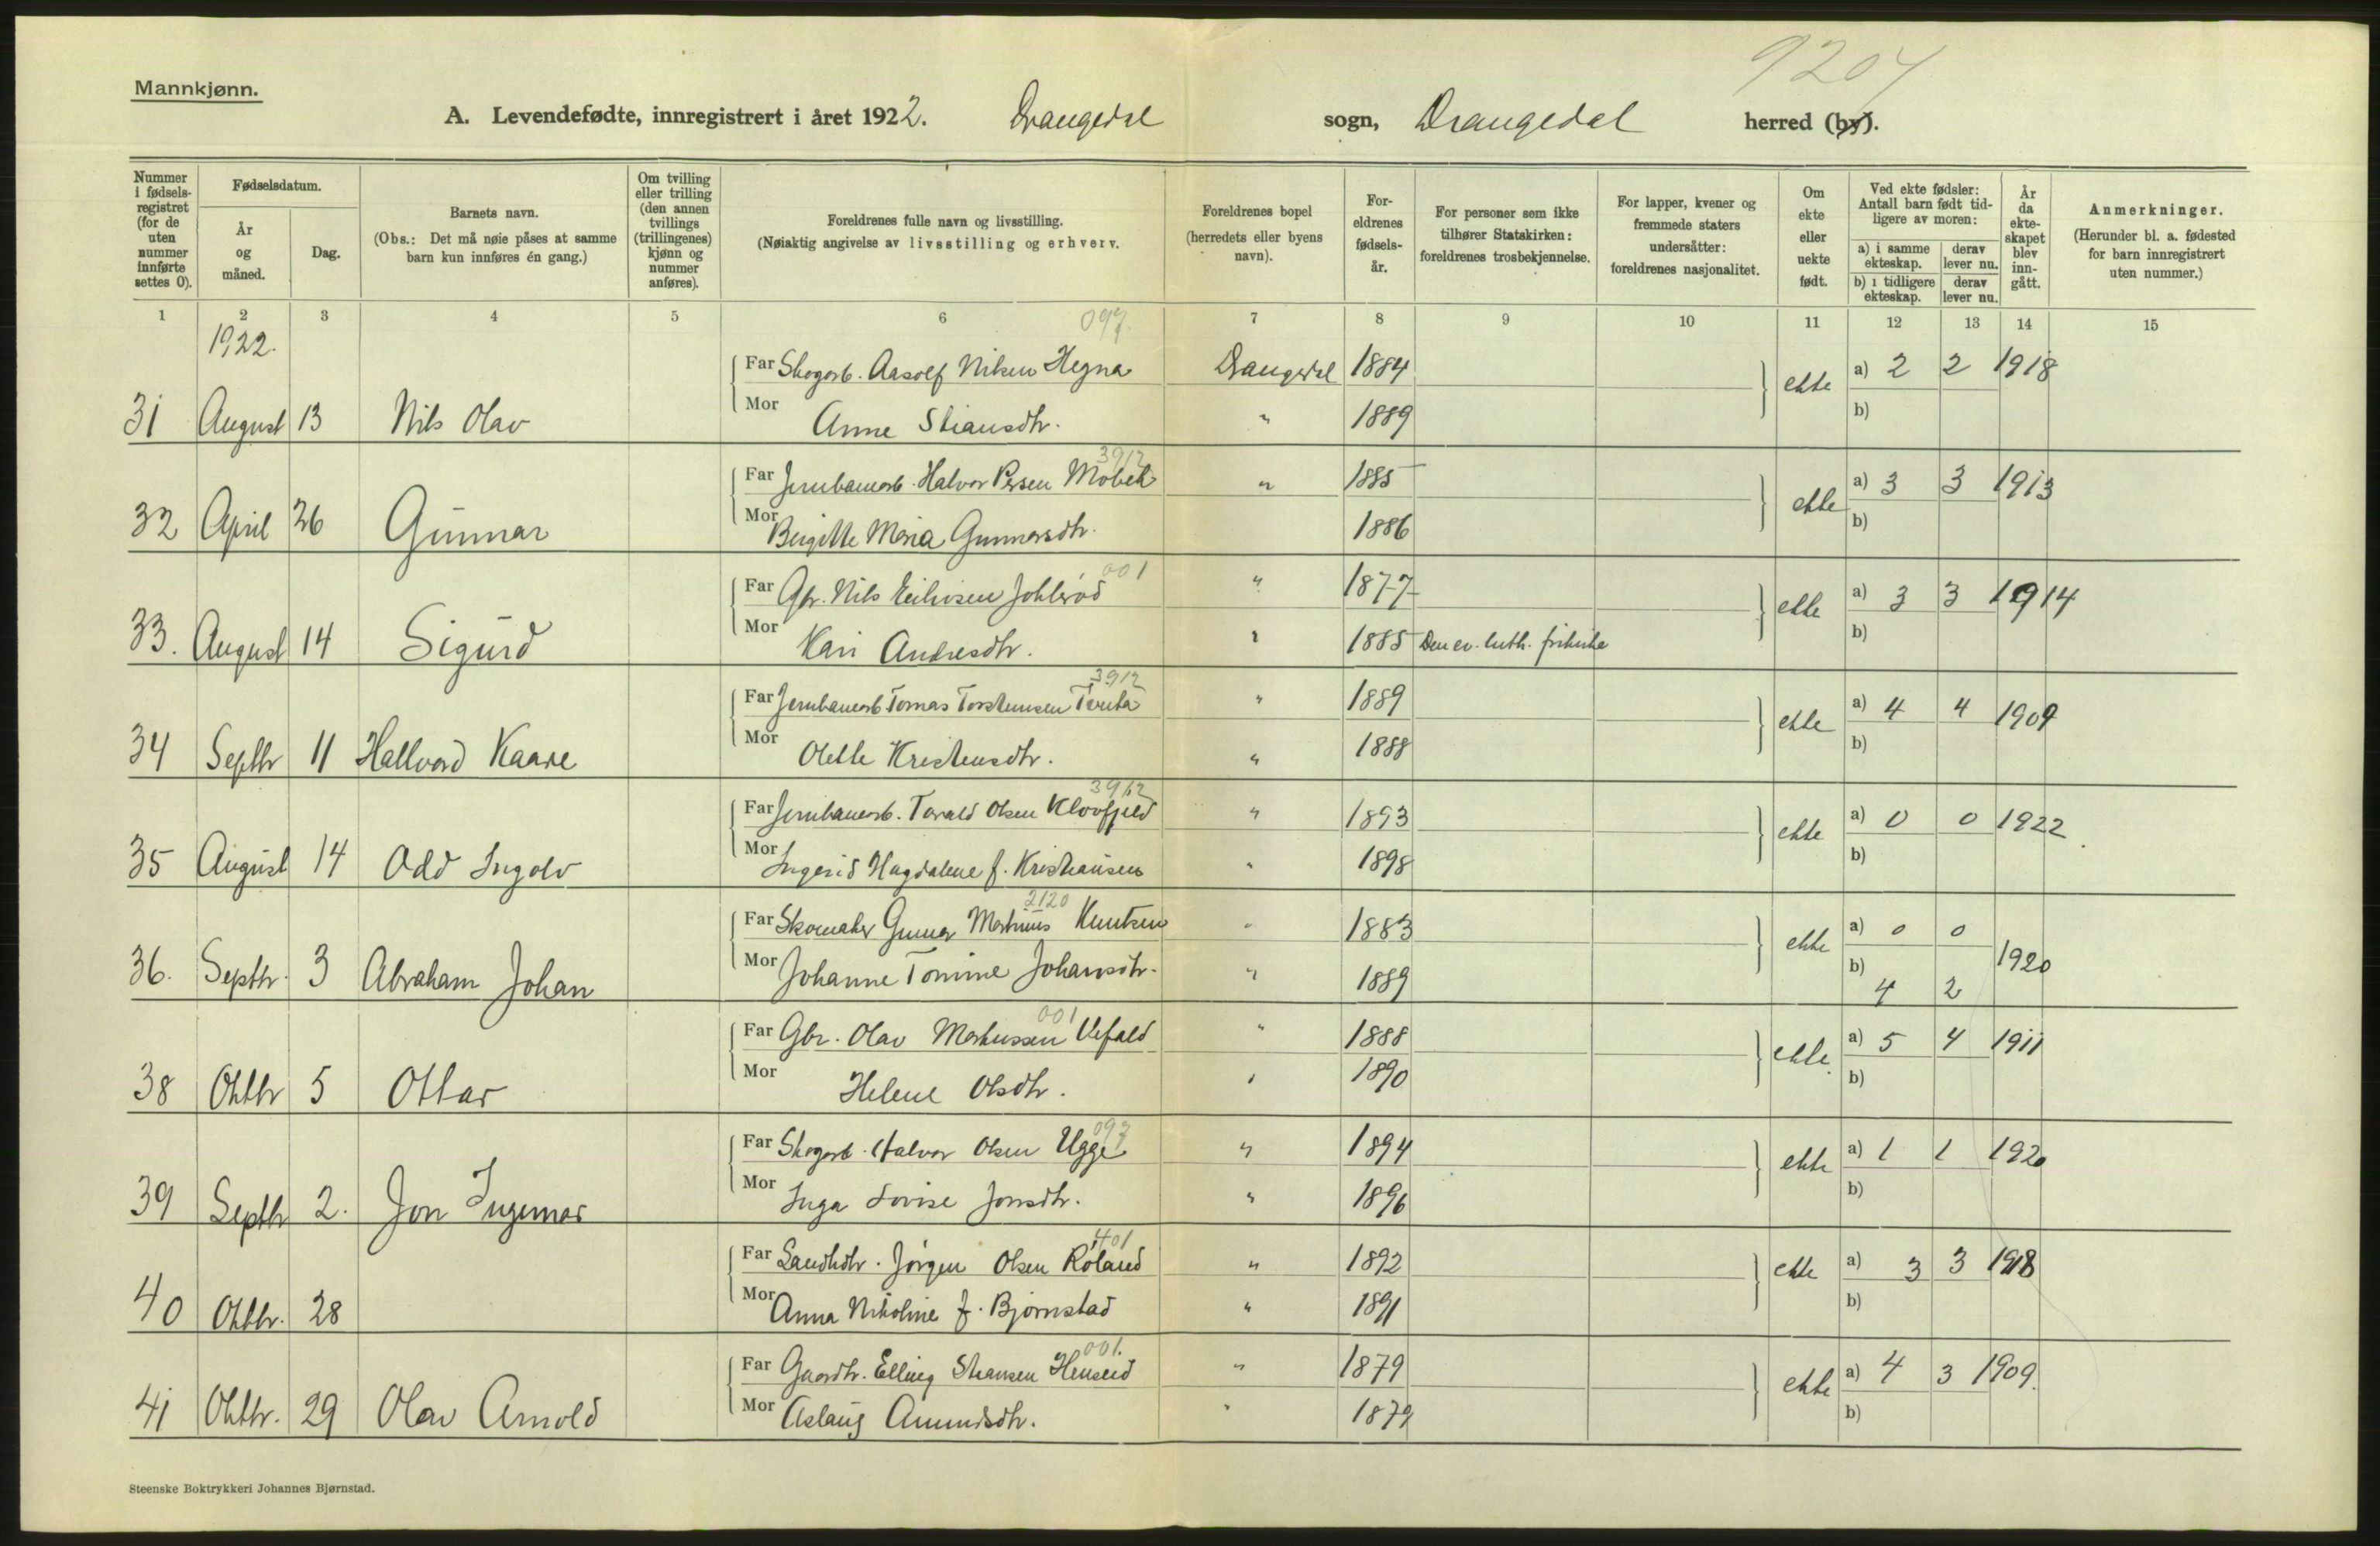 9204
Mannkjønn.
A. Levendefødte, innregistrert i året 1922. Drangedal sogn, Drangedal herred (by).
Nummer i fødsels-registret (for de uten nummer innførte settes 0).
Fødselsdatum.
År og måned.
Dag.
Barnets navn.
(Obs.: Det må nøie påses at samme barn kun innføres én gang.)
Om tvilling eller trilling (den annen tvillings (trillingenes) kjønn og nummer anføres).
Foreldrenes fulle navn og livsstilling.
(Nøiaktig angivelse av livsstilling og erhverv.
Foreldrenes bopel (herredets eller byens navn).
For-eldrenes fødsels-år.
For personer som ikke tilhører Statskirken: foreldrenes trosbekjennelse.
For lapper, kvener og fremmede staters undersåtter: foreldrenes nasjonalitet.
Om ekte eller uekte født.
Ved ekte fødsler: Antall barn født tid-ligere av moren:
a) i samme ekteskap.
derav lever nu.
b) i tidligere ekteskap.
derav lever nu.
År da ekte-skapet blev inn-gått.
Anmerkninger.
(Herunder bl. a. fødested for barn innregistrert uten nummer.)
1 2 3 4 5 6 7 8 9 10 11 12 13 14 15
1922.
097.
Far Skogarb. Aasolf Nilsen Hegna Drangedal 1884 ekte a) 2 2 1918
31 August 13 Nils Olav Mor Anne Stiansdtr. " 1889 b)
3912
Far Jernbanearb. Halvor Persen Mobek " 1885 ekte a) 3 3 1913
32 April 26 Gunnar Mor Birgitte Maria Gunnarsdtr. 1886 b)
001
Far Gbr. Nils Eilivsen " 1877 ekte a) 3 3 1914
33. August 14 Sigurd Mor Kari Andresdtr. " 1885 Den ev. luth. frikirke b)
3912
Far Jernbanearb. Tomas Torstensen Tveita " 1889 ekte a) 4 4 1909
34 Septbr 11 Hallvard Kaare Mor Olette Kristensdtr. " 1888 b)
3912
Far Jernbanearb. Tarald Olsen Klovfjeld " 1893 ekte a) 0 0 1922
35 August 14 Odd Ingolv Mor Ingerid Magdalene f. Kristiansen " 1898 b)
2120
Far Skomaker Gunnar Martinius Knutsen " 1883 ekte a) 0 0 1920
36. Septbr. 3 Abraham Johan Mor Johanne Tomine Johansdtr. " 1889 b) 4 2
001
Far Gbr. Olav Markussen Vefald " 1888 ekte a) 5 4 1911
38 Oktbr 5 Ottar Mor Helene Olsdtr. " 1890 b)
097
Far Skogarb. Halvor Olsen Ugge " 1894 ekte a) 1 1 1920
39 Septbr 2. Jon Ingemar Mor Inga Lovise Jonsdtr. " 1896 b)
401
Far Landhdlr. Jørgen Olsen Roland " 1892 ekte a) 3 3 1918
40 Oktbr. 28 Mor Anna Nikoline f. Bjørnstad " 1891 b)
001.
Far Gaardbr. Elling Stiansen Henseid " 1879 ekte a) 4 3 1909.
41 Oktbr. 29 Olav Arnold Mor Aslaug Amundsdtr. " 1879 b)
Steenske Boktrykkeri Johannes Bjørnstad.